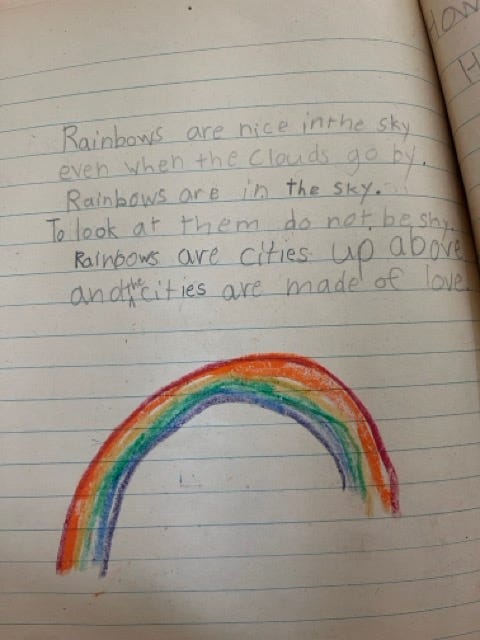 Rainbows are nice in the sky
even when the clouds go by.
Rainbows are in the sky.
To look at them do not be shy.
Rainbows are cities up above
and the cities are made of love.
How
H